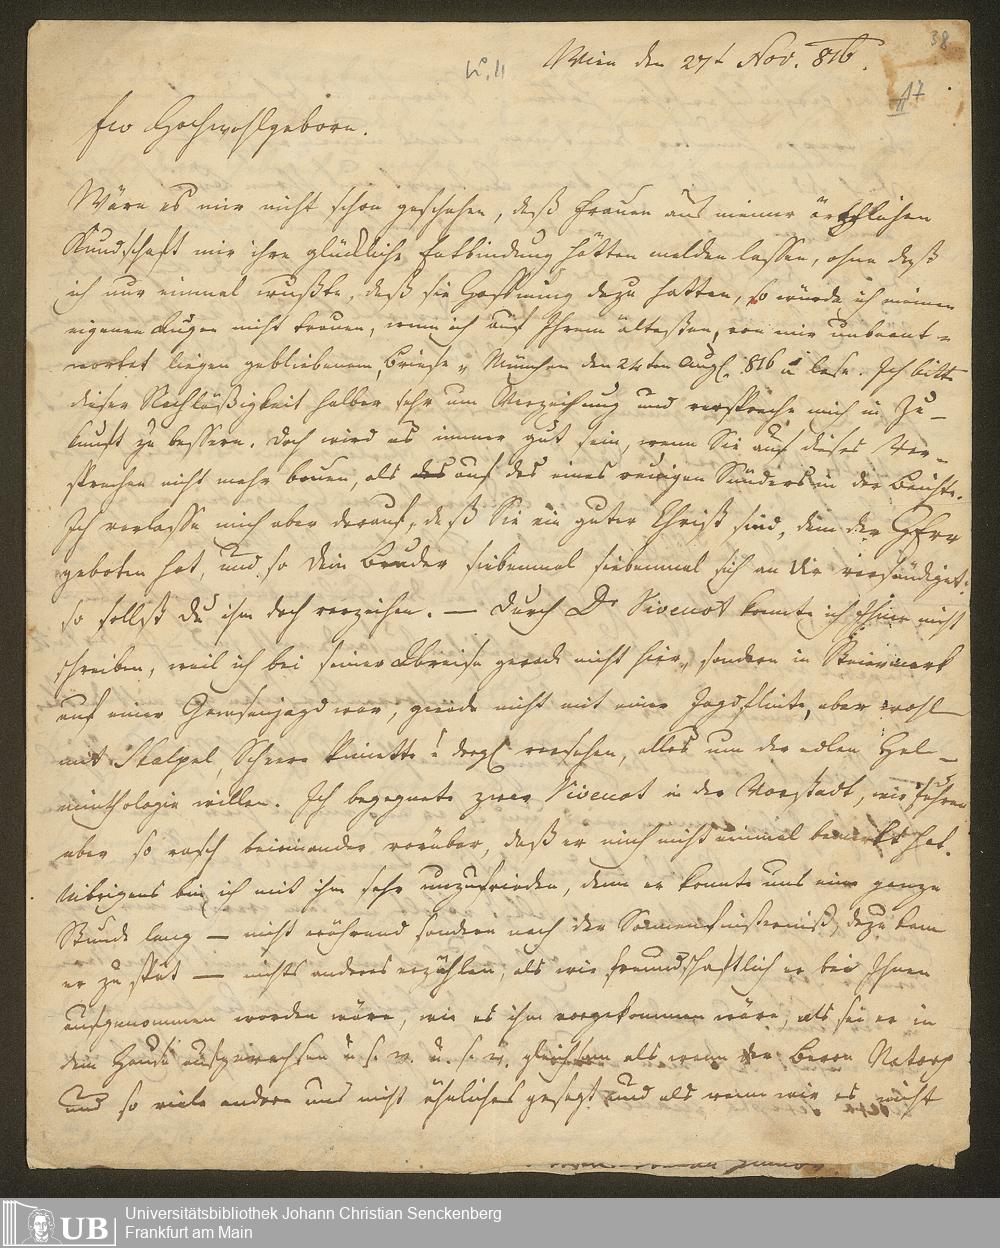 38
Wien den 27t Nov. 816.
17
Ew Hochwohlgeborn.
Wäre es mir nicht schon geschehen, daß Frauen aus meiner ärztlichen
Kundschaft mir ihre glückliche Entbindung hätten melden lassen, ohne daß
ich nur einmal wußte, daß sie Hoffnung dazu hatten, so würde ich meinen
eigenen Augen nicht trauen, wenn ich auf Ihrem ältesten, von mir unbeant-
wortet liegen gebliebenem Briefe „München den 24ten Aug. 816" lese. Ich bitte
dieser Nachläßigkeit halber sehr um Verzeihung und verspreche mich in Zu-
kunft zu bessern. Doch wird es immer gut sein, wenn Sie auf dieses Ver-
sprechen nicht mehr bauen, als auf das eines reuigen Sünders in der Beichte.
Ich verlasse mich aber darauf, daß Sie ein guter Christ sind, dem der Herr
geboten hat, und so Dein Bruder siebenmal siebenmal sich an Dir versündiget:
so sollst Du ihm doch verzeihen. — Durch Dr Vivenot konnte ich Ihnen nicht
schreiben, weil ich bei seiner Abreise gerade nicht hier, sondern in Steiermark
auf einer Gemsenjagd war, gerade nicht mit einer Jagdflinte, aber wohl
mit Skalpel, Schere Pinette u dergl versehen, alles um der edlen Hel-
minthologie willen. Ich begegnete zwar Vivenot in der Vorstadt, wir fuhren
aber so rasch beieinander vorüber, daß er mich nicht einmal bemerkt hat.
Übrigens bin ich mit ihm sehr unzufrieden, denn er konnte uns eine ganze
Stunde lang — nicht während sondern nach der Sonnenfinsterniß, dazu kam
er zu spät — nichts anderes erzählen, als wie freundschaftlich er bei Ihnen
aufgenommen worden wäre, wie es ihm vorgekommen wäre, als sei er in
dem Hause aufgewachsen u. s. w. u. s. w. gleichsam als wenn der Baron Natorp
und so viele andere uns nicht ähnliches gesagt und als wenn wir es nicht
UB
Universitätsbibliothek Johann Christian Senckenberg
Frankfurt am Main